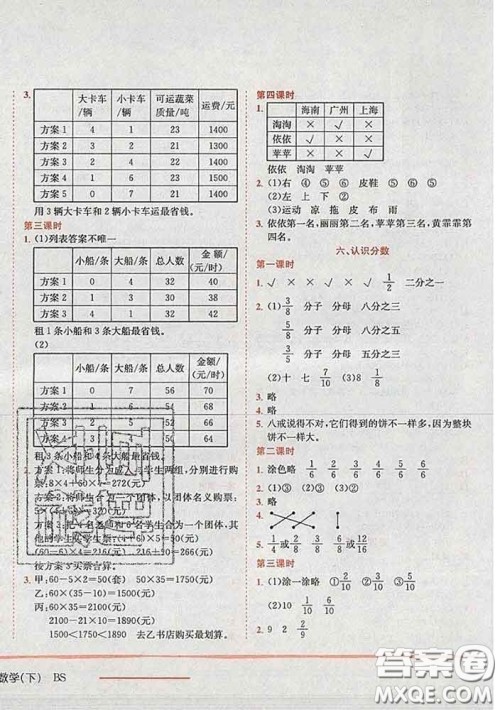 3.
大卡车/辆 小卡车/辆 可运蔬菜质量/吨 运费/元
方案1 4 1 23 1400
方案2 3 2 21 1300
方案3 2 4 22 1400
方案4 1 6 23 1500
方案5 0 7 21 1400
用3辆大卡车和2辆小卡车运最省钱。
第三课时
1. (1)列表答案不唯一
小船/条 大船/条 总人数 金额/(元/时)
方案1 4 2 32 40
方案2 1 3 28 38
方案3 0 4 32 44
租1条小船和3条大船最省钱。
(2)
小船/条 大船/条 总人数 金额/(元/时)
方案1 0 7 56 70
方案2 1 6 52 68
方案3 2 5 48 66
方案4 3 4 44 64
租3条小船和4条大船最省钱。
2. 方案1:将师生分为成人与学生两组,分别进行购
票:8×4+60×4=272(元)
方案2:将师生组成一个团体,以团体名义购票:
5×(60+4)=320(元)
其他的学生购学生票
按方案3买票合算。
3. 甲:60-5×2=50(套) 50×35=1750(元)
乙:60×(35-10)=1500(元)
丙:60×35=2100(元)
2100-21×10=1890(元)
1500<1750<1890 去乙书店购买最划算。
第四课时
1.
海南 广州 上海
淘淘 × √ ×
依依 × × √
苹苹 √ × ×
依依 淘淘 苹苹
2. (1)右 ④ ⑤ ⑥ 皮鞋 ⑤ ⑥
(2)左 上 下 ②
(3)运动 凉 拖 皮 布 雨
3. 依依第一名,丽丽第二名,苹苹第三名,黄霏霏第
四名。
六、认识分数
第一课时
1. √ × √ × √ × 1/2 二分之一
2. (1)3/8 分子 分母 八分之三
5/8 分子 分母 八分之五
3/8 分子 分母 八分之三
(2)十 七 7/10 (3)8 1/8
3. 略
4. 略
5. 八戒说得不对,它们得到的饼不一样多,因为整块
饼不一样大。
第二课时
1. 涂色略 1/6 2/6 3/6 4/6 5/6
2. (1)③ (2)① (3)②
3. 略
4.
5. 1/4或2/8 3/6或1/2 4/12或1/3
第三课时
1. (1)涂一涂略 ① 2/10 ② 3/10
(2)10 1/10 5/10 4/10
2. 9 2 2/9
数学(下) BS
答案圈
MXQE.COM